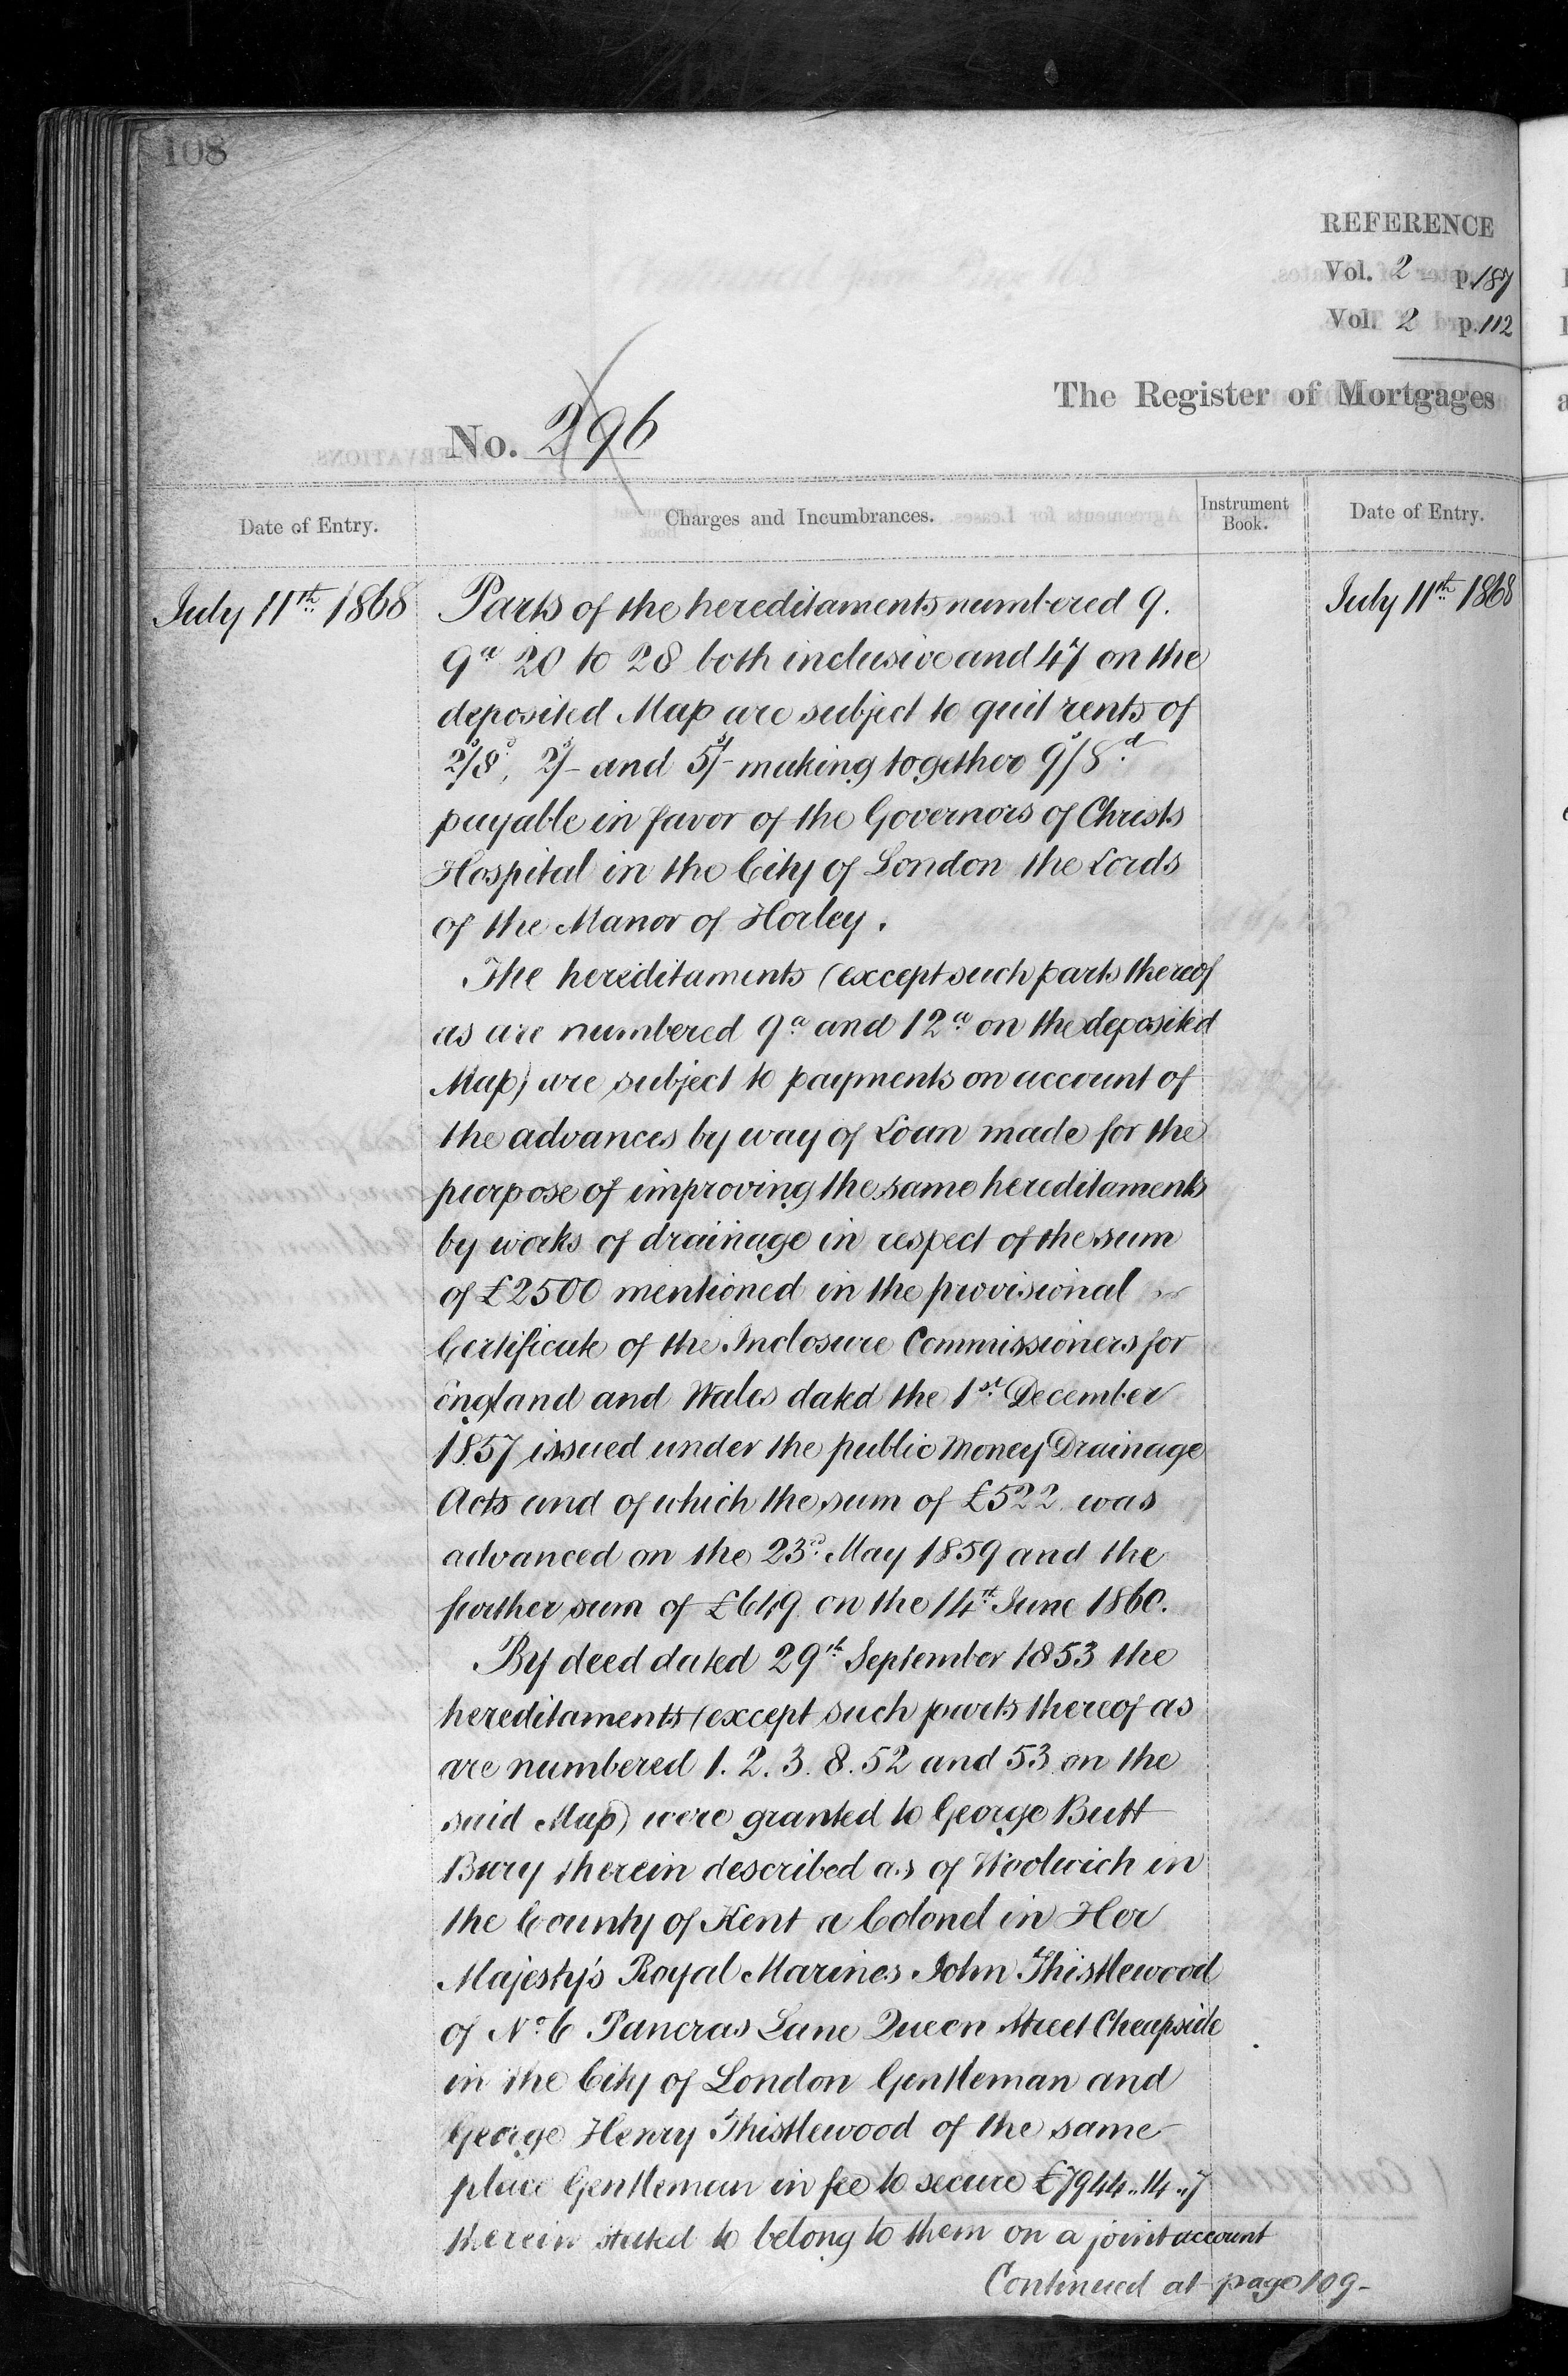 108
REFERENCE
Vol. 2 p. 187
Vol. 2 p. 112
The Register of Mortgages
No. 296
Date of Entry.
Charges and Incumbrances.
Instrument Book.
Date of Entry.
July 11th 1868
July 11th 1868
Parts of the hereditaments numbered 9.
9a 20 to 28 both inclusive and 47 on the
deposited Map are subject to quit rents of
2s/8d, 2s/- and 5s/- making together 9s/8d
payable in favor of the Governors of Christs
Hospital in the City of London the Lords
of the Manor of Horley.
The hereditaments (except such parts thereof
as are numbered 9a and 12a on the deposited
Map) are subject to payments on account of
the advances by way of Loan made for the
purpose of improving the same hereditaments
by works of drainage in respect of the sum
of £2500 mentioned in the provisional
Certificate of the Inclosure Commissioners for
England and Wales dated the 1st December
1857 issued under the public Money Drainage
Acts and of which the sum of £522 was
advanced on the 23d May 1859 and the
further sum of £649 on the 14th June 1860.
By deed dated 29th September 1853 the
hereditaments (except such parts thereof as
are numbered 1. 2. 3. 8. 52 and 53 on the
said Map) were granted to George Butt
Bury therein described as of Woolwich in
the County of Kent a Colonel in Her
Majesty's Royal Marines John Thistlewood
of No 6 Pancras Lane Queen Street Cheapside
in the City of London Gentleman and
George Henry Thistlewood of the same
place Gentleman in fee to secure £7944..14..7
therein stated to belong to them on a joint account
Continued at page 109-